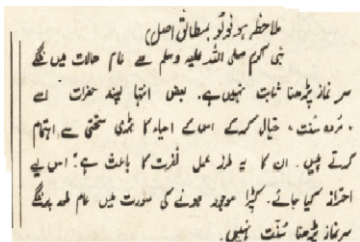 ملاحظہ ہو فوٹو بمطابق اصل)
نبی کرم صلی اللہ علیہ وسلم سے عام حالات میں ننگے
سر نماز پڑھنا ثابت نہیں ہے۔ بعض انتہا پسند حضرات اسے
"مردہ سنت" خیال کرکے اس کے احیاء کا بڑی سختی سے اہتمام
کرتے ہیں۔ ان کا یہ طرز عمل نفرت کا باعث ہے، اس لیے
احتراز کیا جائے۔ کپڑا موجود ہونے کی صورت میں عام طور پر ننگے
سر نماز پڑھنا سنت نہیں۔